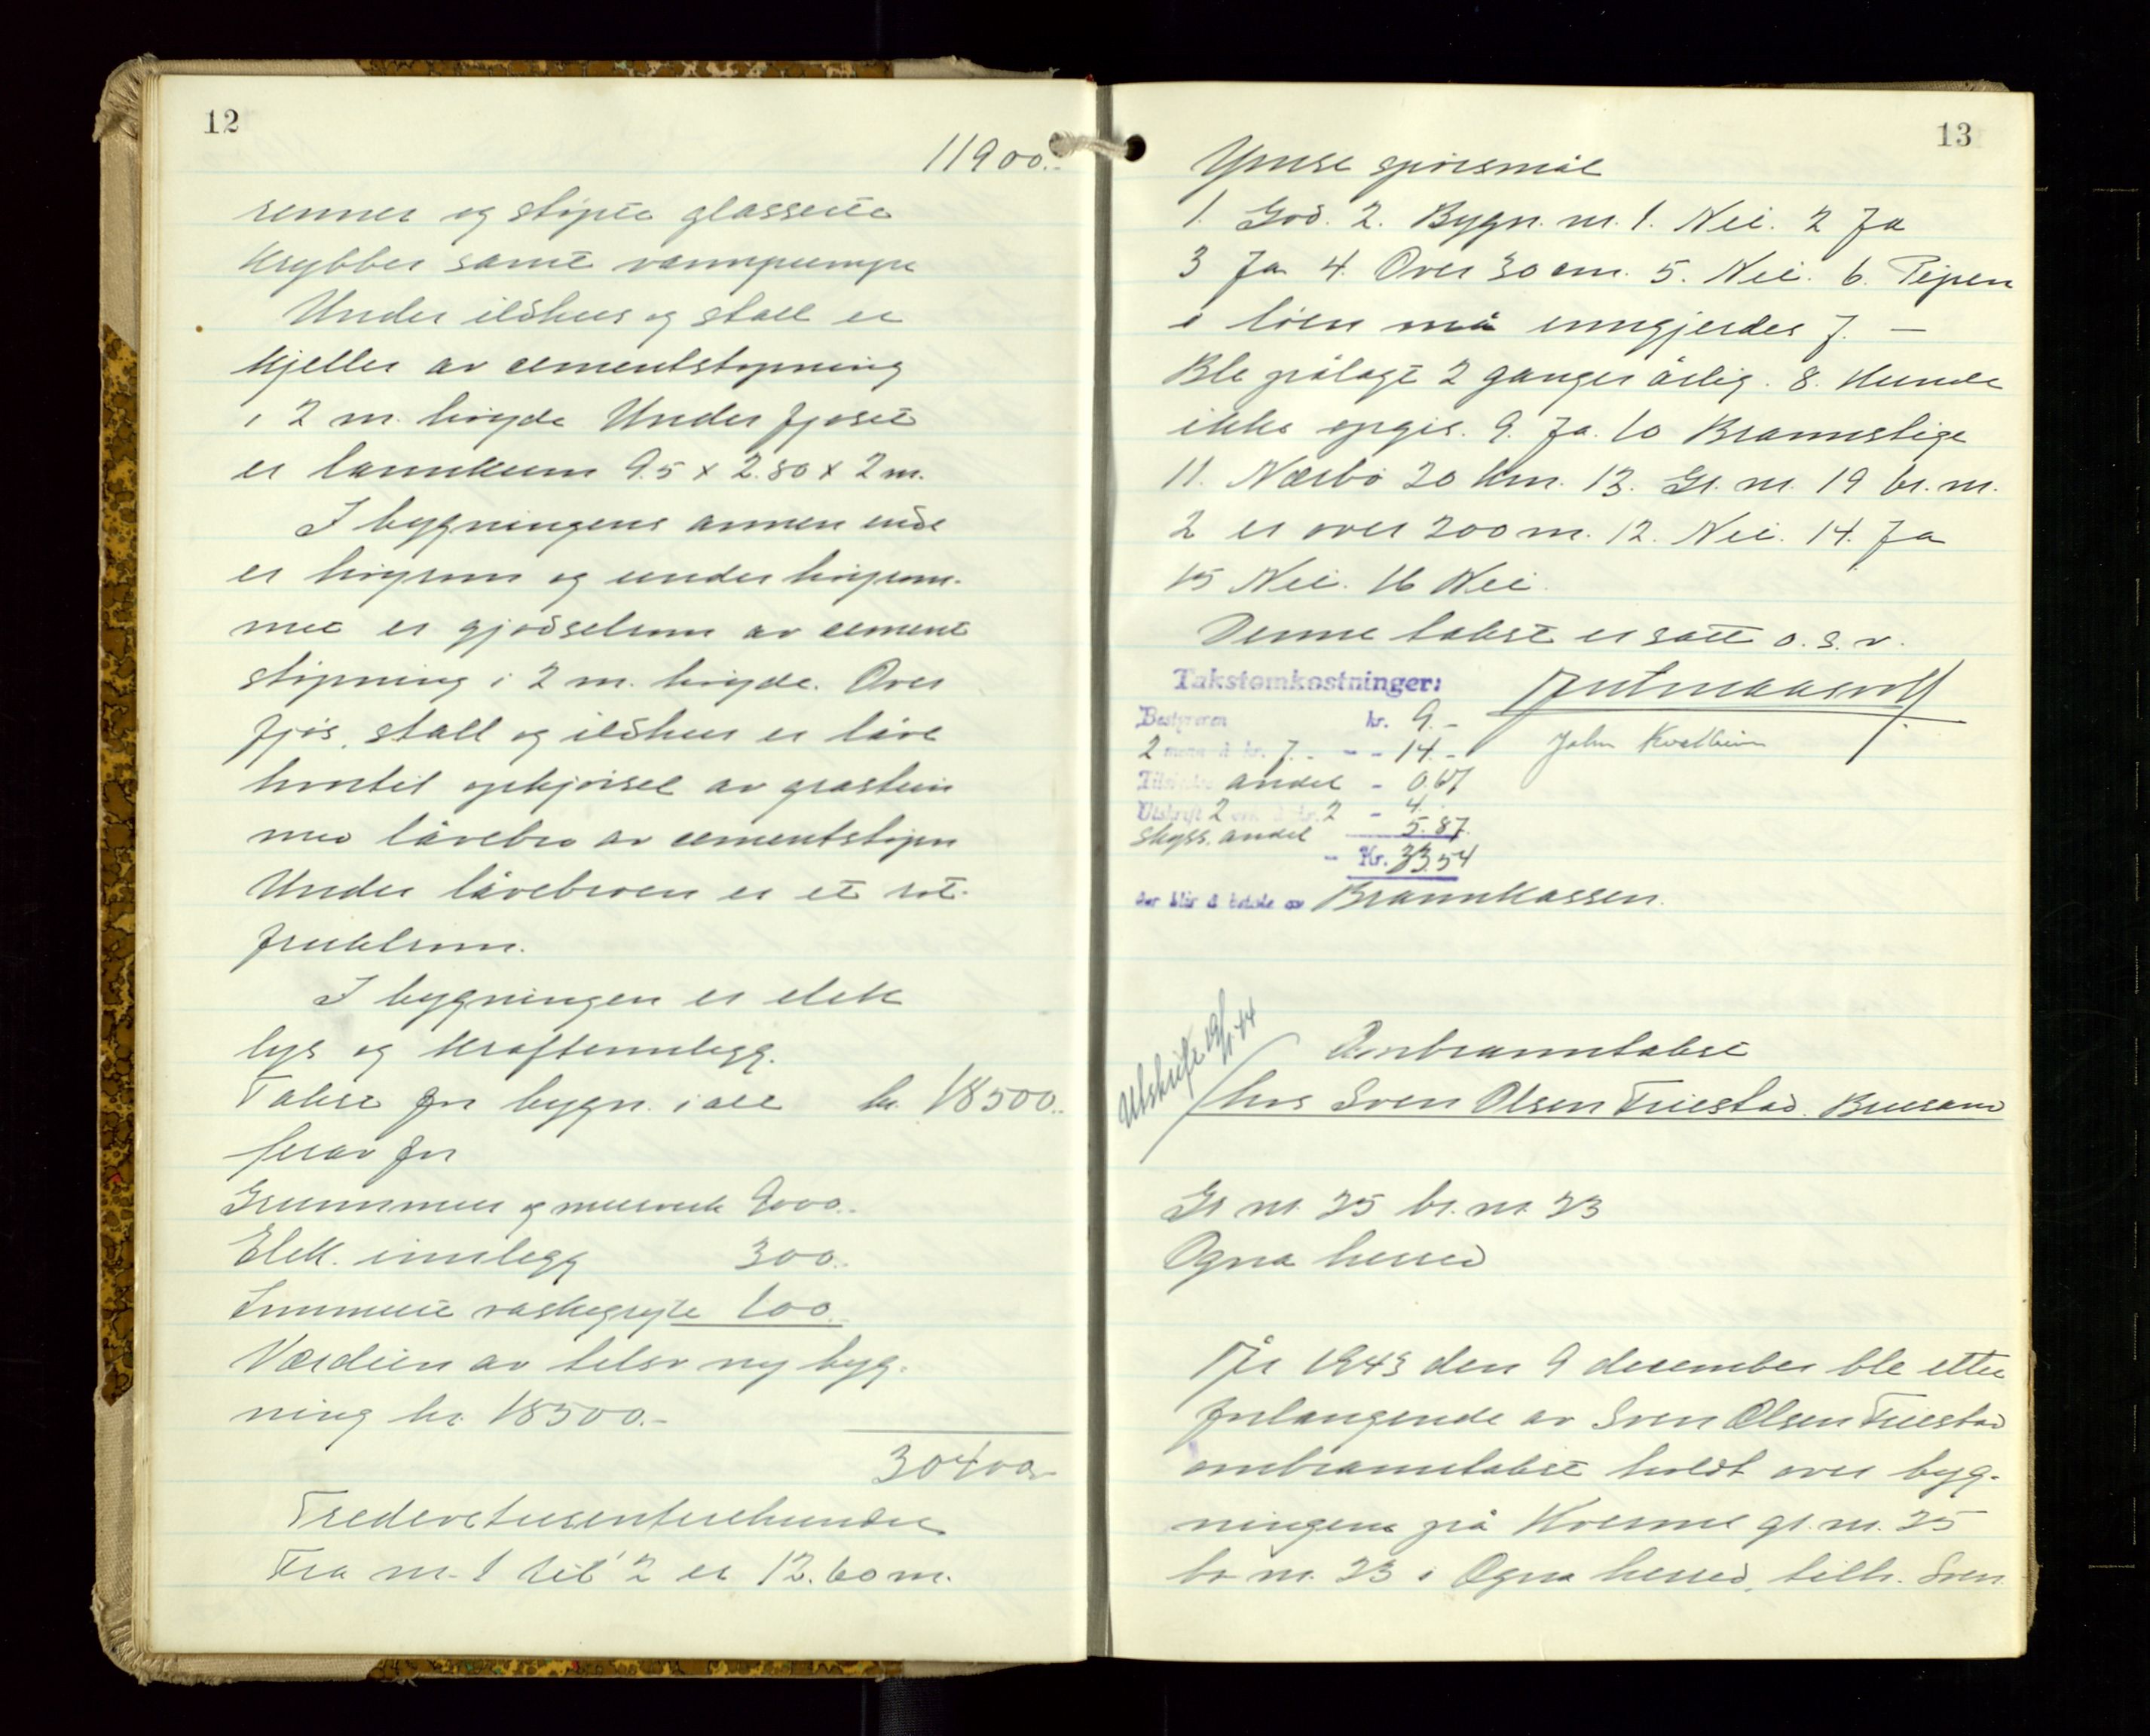 12
11900.-
renner og støpte glasserte
Krybber samt vannpumpe
Under ildhus og stall er
Kjeller av cementstøpning
i 2 m. høyde Under fjoset
er lannkum 9.5 x 2.80 x 2 m.
I bygningens annen ende
er høyrom og under høyrom-
met er gjødselrom av cement
støpning i 2 m. høyde. Over
fjøs, stall og ildhus er låve
hvortil opkjørsel av gråstein
med låvebro av cementstøpn
Under låvebroen er et rot-
fruktrom.
I bygningen er elek
lys og Kraftinnlegg.
Takst for bygn. i alt kr. 18500.-
herav for
Grunnmur og murverk 9000.-
Elek. innlegg 300.-
Innmurt vaskegryte 100.-
Værdien av tilsv ny byg-
ning kr. 18500.-
30400.-
Tredevetusenfirehundre
Fra nr. 1 til 2 er 12.60 m.
13
Ymse spørsmål
1. God. 2. Bygn. nr. 1. Nei. 2 Ja
3 Ja 4. Over 30 cm. 5. Nei. 6. Pipen
i löen må inngjerdes 7. –
Ble pålagt 2 ganger årlig. 8. Kunde
ikke opgis. 9. Ja. 10 Brannstige
11. Nærbø 20 km. 13. Gr. nr. 19 br. nr.
2 er over 200 m. 12. Nei. 14. Ja
15 Nei. 16 Nei.
Denne takst er satt o. s. v.
Takstomkostninger:
Bestyreren kr. 9.-
John Kvalheim
2 menn à kr. 7.- - - 14.-
andel - 0.67
Utskrift 2 erk. à kr. 2 - 4.-
skyss. andel 5.87
- Kr. 33.54
der blir å betale av Brannkassen.
Utskrift 19/1-44
Ombranntakst
hos Sven Olsen Tuestad. Brusand
Gr nr. 25 br. nr. 23
Ogna herred
År 1943 den 9 desember ble etter
forlangende av Sven Olsen Tuestad
ombranntakst holdt over byg-
ningene på Kvemme gr. nr. 25
br nr. 23 i Ogna herred, tilh. Sven